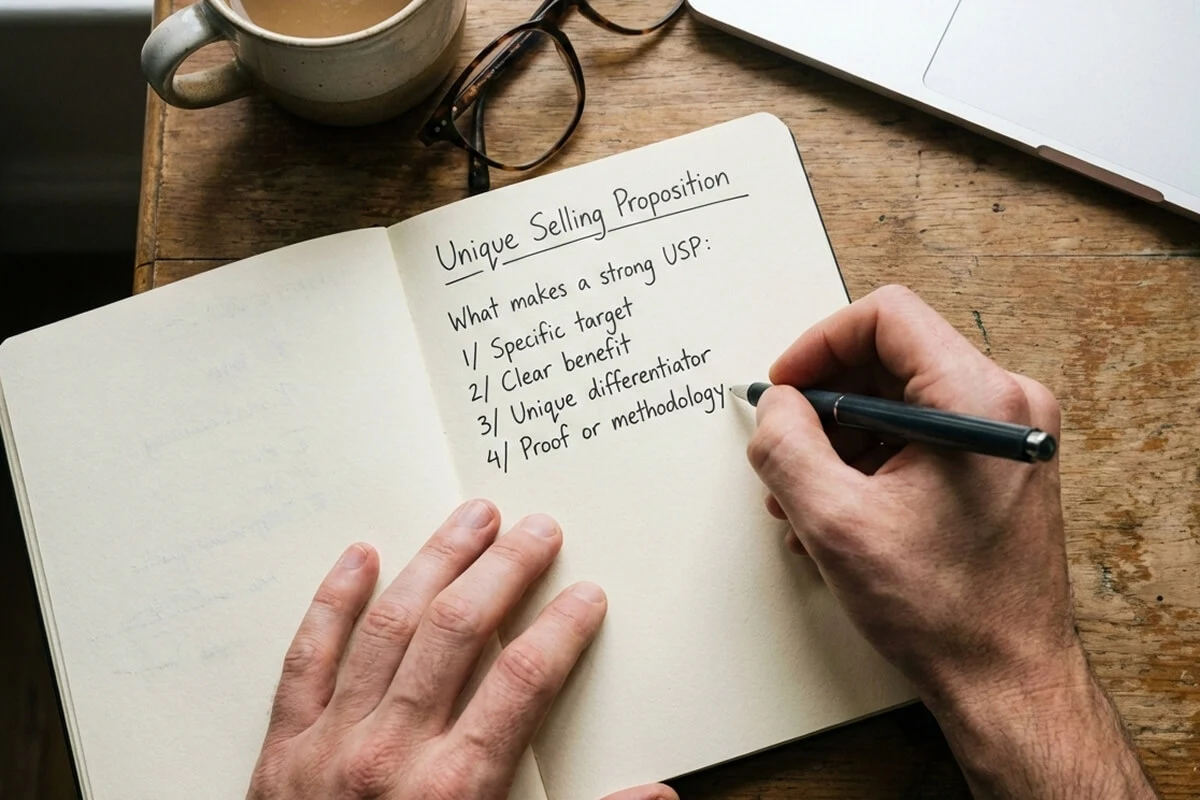 Unique Selling Proposition
What makes a strong USP:
1/ Specific target
2/ Clear benefit
3/ Unique differentiator
4/ Proof or methodology